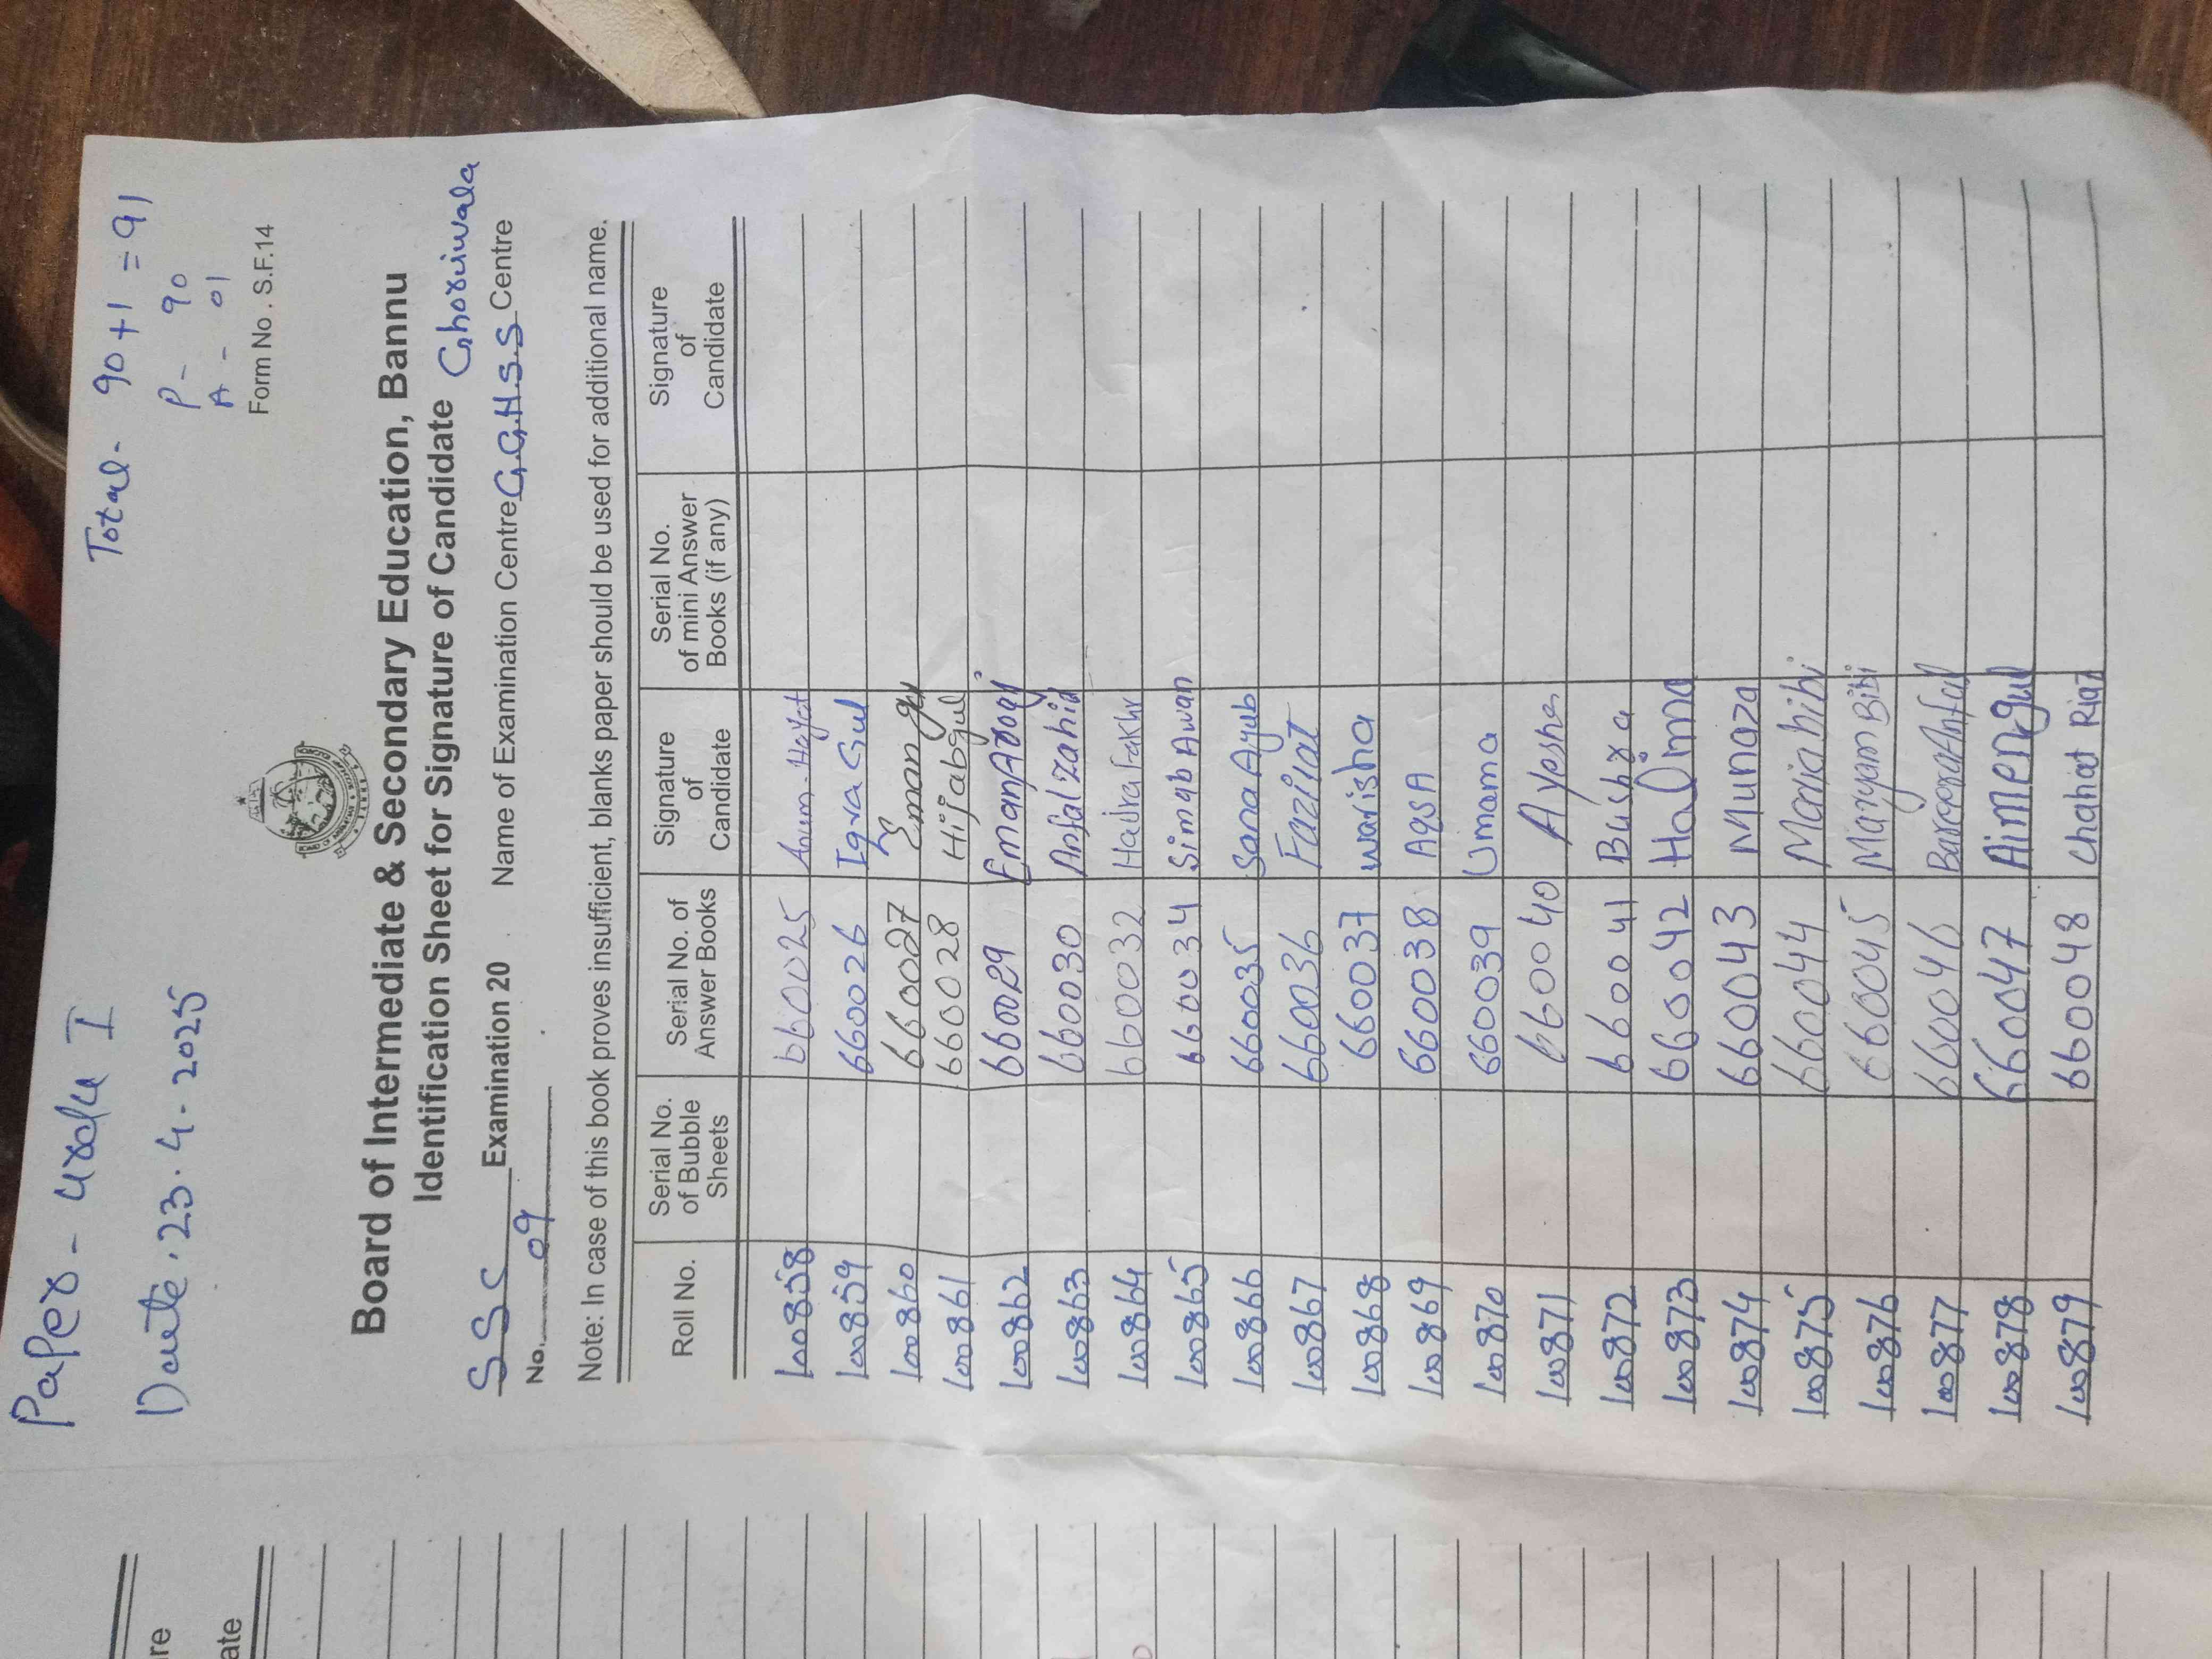 Paper - Urdu I
Total - 90 + 1 = 91
Date. 23. 4. 2025
P - 90
A - 01
Form No. S.F.14
Board of Intermediate & Secondary Education, Bannu
Identification Sheet for Signature of Candidate Ghoriwala
SSC Examination 20 Name of Examination Centre G.G.H.S.S Centre
No. 09
Note: In case of this book proves insufficient, blanks paper should be used for additional name.
Roll No. Serial No. of Bubble Sheets Serial No. of Answer Books Signature of Candidate Serial No. of mini Answer Books (if any) Signature of Candidate
100858 660025 Anum Hayat
100859 660026 Iqra Gul
100860 660027 Eman gul
100861 660028 Hijabgul
100862 660029 Eman
100863 660030 Anfal zahid
100864 660032 Hadra Fakhr
100865 660034 Simab Awan
100866 660035 Sana Ayub
100867 660036 Fazilat
100868 660037 warisha
100869 660038 AqsA
100870 660039 Umama
100871 660040 Ayesha
100872 660041 Bushra
100873 660042 Halima
100874 660043 Munaza
100875 660044 Maria bibi
100876 660045 Maryam Bibi
100877 660046
100878 660047 Aimengul
100879 660048 Chahat Riaz
re
ate